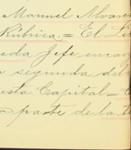 Manuel Alvare
Rúbrica.= El Se
eda Jefe encar
a segunda del
esta Capital= C
parte de la